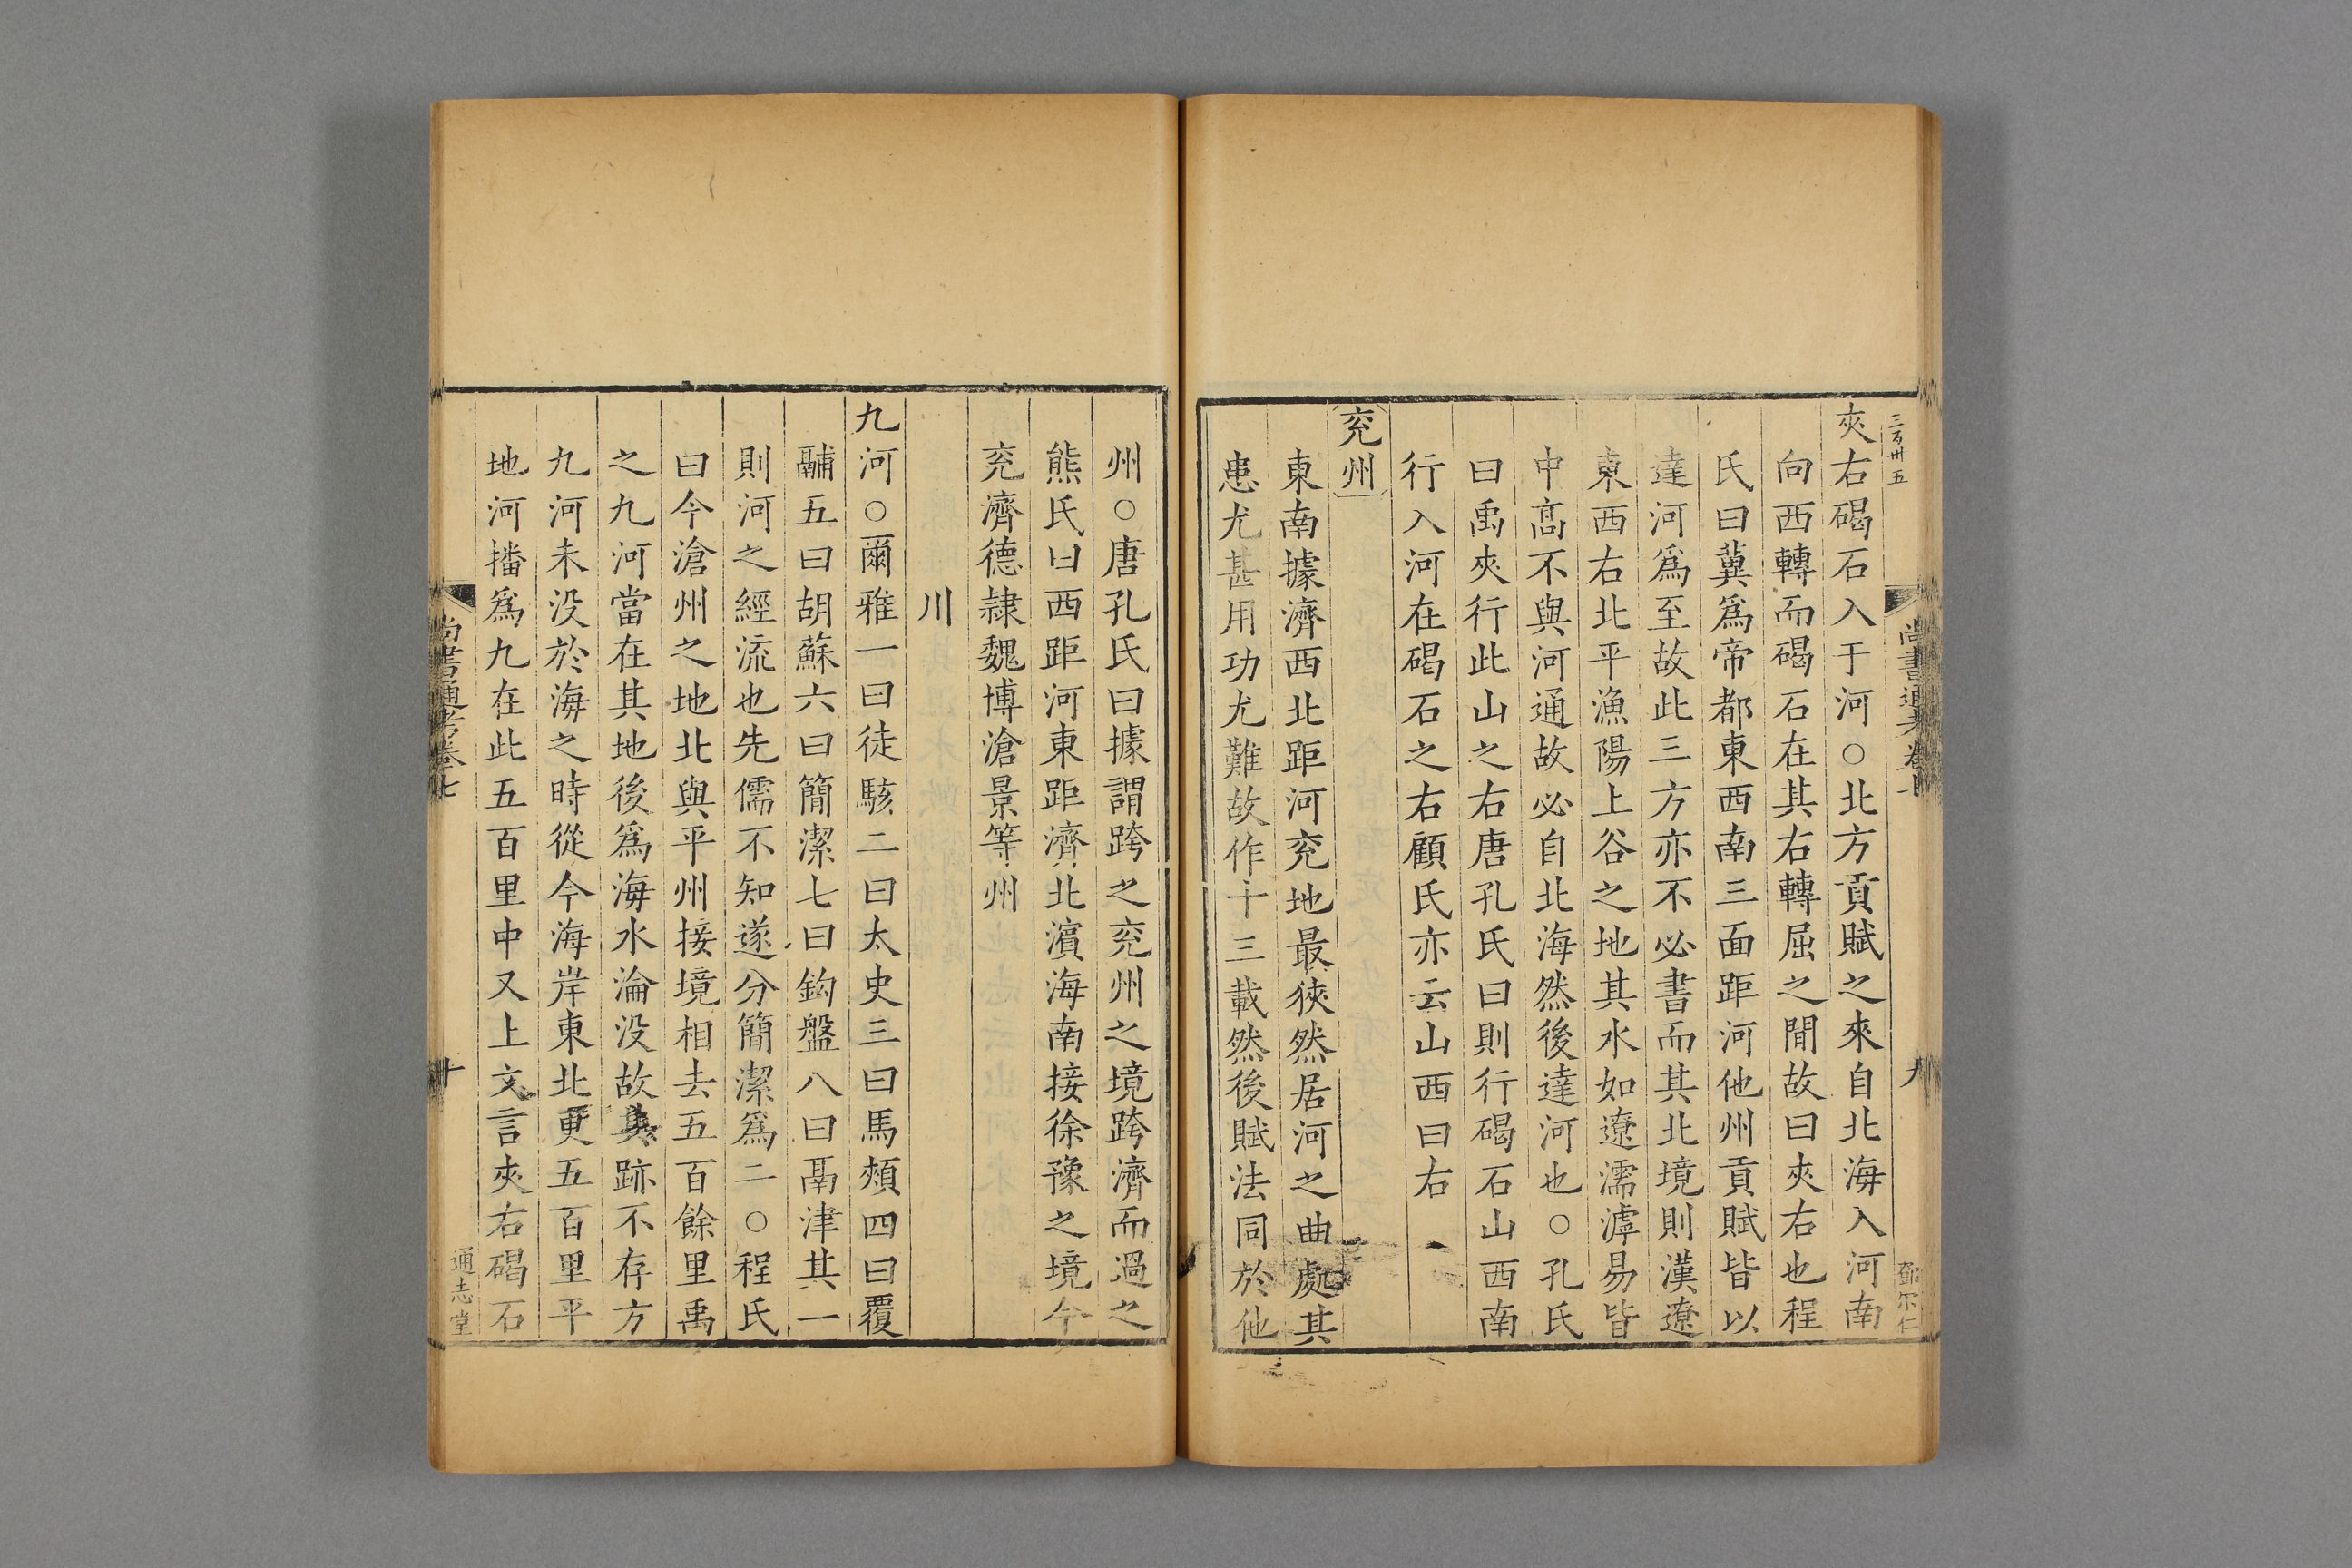 三百卅五
尚書通考卷七
九
鄧尔仁
夾右碣石入于河○北方貢賦之來自北海入河南
向西轉而碣石在其右轉屈之閒故曰夾右也程
氏曰冀爲帝都東西南三面距河他州貢賦皆以
達河爲至故此三方亦不必書而其北境則漢遼
東西右北平漁陽上谷之地其水如遼濡滹易皆
中髙不與河通故必自北海然後達河也○孔氏
曰禹夾行此山之右唐孔氏曰則行碣石山西南
行入河在碣石之右顧氏亦云山西曰右
兖州
東南據濟西北距河兖地最狹然居河之曲處其
患尤甚用功尤難故作十三載然後賦法同於他
州○唐孔氏曰據謂跨之兖州之境跨濟而過之
熊氏曰西距河東距濟北濱海南接徐豫之境今
兖濟德隷魏博滄景等州
川
九河○爾雅一曰徒駭二曰太史三曰馬頰四曰覆
鬴五曰胡蘇六曰簡潔七曰鈎盤八曰鬲津其一
則河之經流也先儒不知遂分簡潔爲二○程氏
曰今滄州之地北與平州接境相去五百餘里禹
之九河當在其地後爲海水淪没故其跡不存方
九河未没於海之時從今海岸東北更五百里平
地河播爲九在此五百里中又上文言夾右碣石
尚書通考卷七
十
通志堂